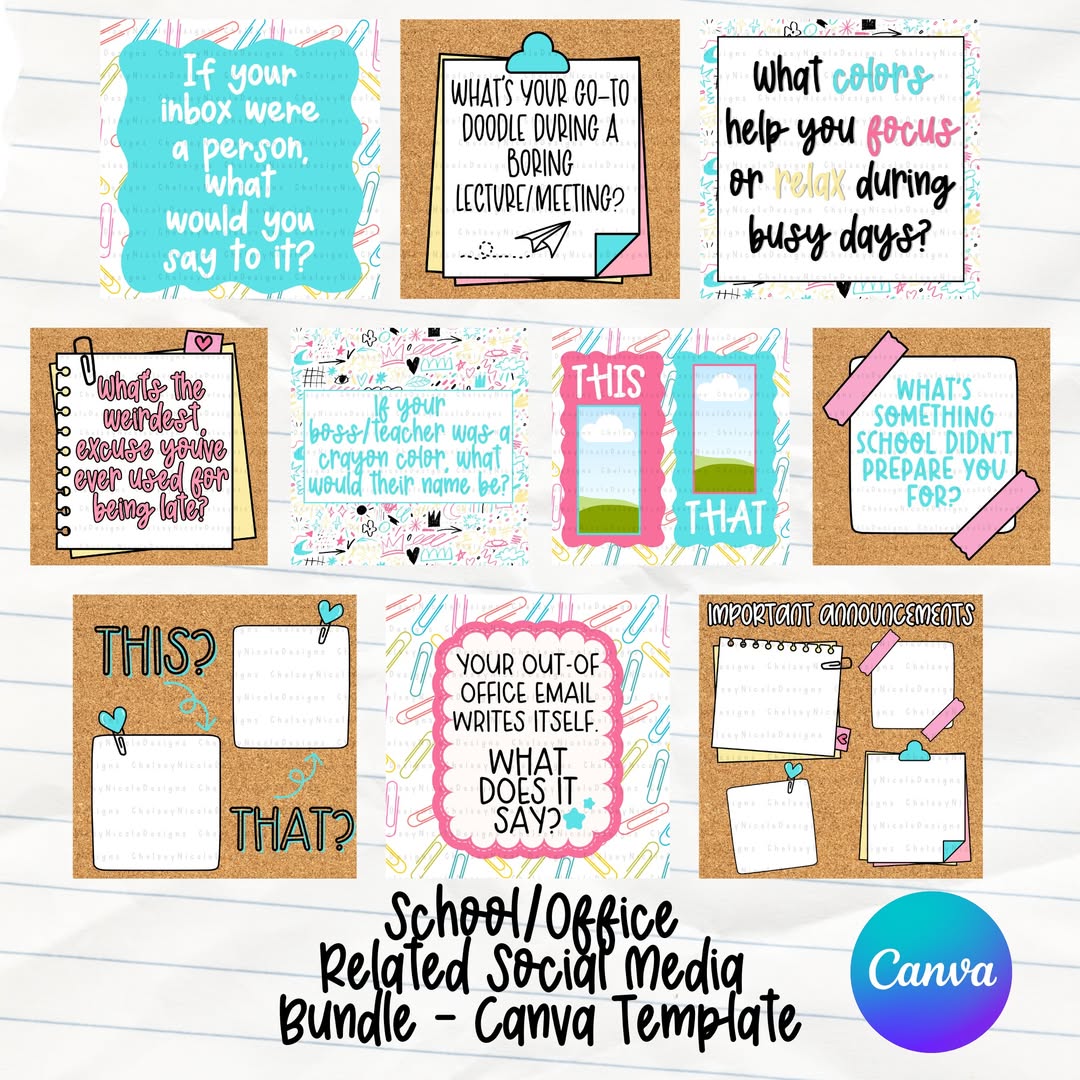 If your
inbox were
a person,
what
would you
say to it?
WHAT'S YOUR GO-TO
DOODLE DURING A
BORING
LECTURE/MEETING?
What colors
help you focus
or relax during
busy days?
What's the
weirdest
excuse you've
ever used for
being late?
If your
boss/teacher was a
crayon color, what
would their name be?
THIS
THAT
WHAT'S
SOMETHING
SCHOOL DIDN'T
PREPARE YOU
FOR?
THIS?
THAT?
YOUR OUT-OF
OFFICE EMAIL
WRITES ITSELF.
WHAT
DOES IT
SAY?
IMPORTANT ANNOUNCEMENTS
ChelseyNicoleDesigns
School/Office
Related Social Media
Bundle - Canva Template
Canva